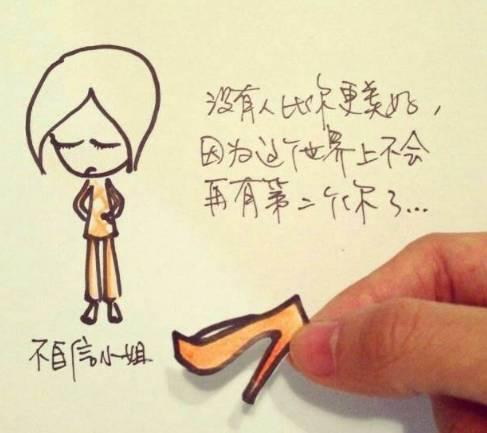 没有人比你更美好，
因为这个世界上不会
再有第二个你了...
不自信小姐